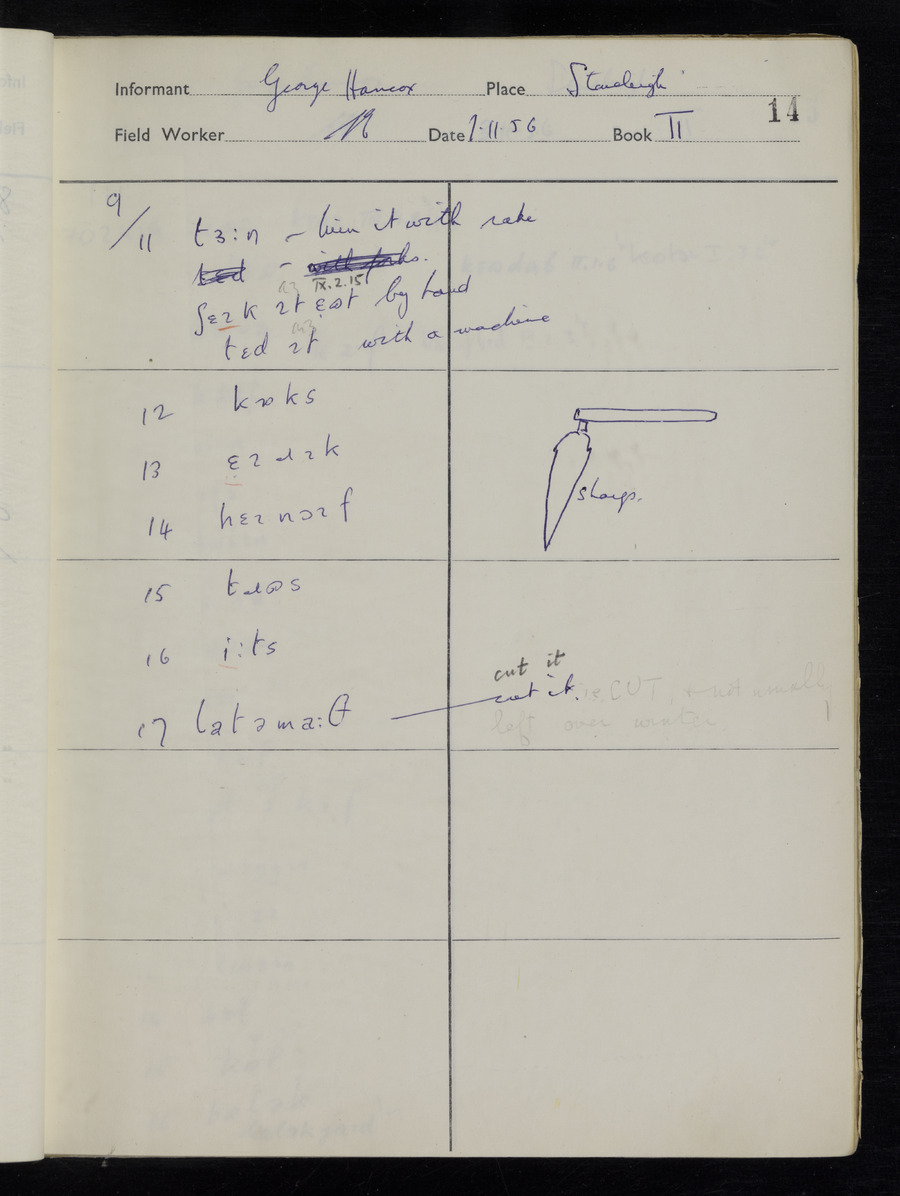 Informant George Hancox Place Stoneleigh
14
Field Worker Date 1.11.56 Book II
9/11 tɜ:n – turn it with rake
tɛd – with forks.
IX.2.15
ʃɛɪk ɪt ɛʊt by hand
tɛd ɪt with a machine
12 kɒks
13 ɛɪɹɪk
14 hɛɪnɔɪf
sharp.
15 tɹʊs
16 i:ts
cut it
17 latəma:θ cut it. i.e. CUT, & not usually
left over winter